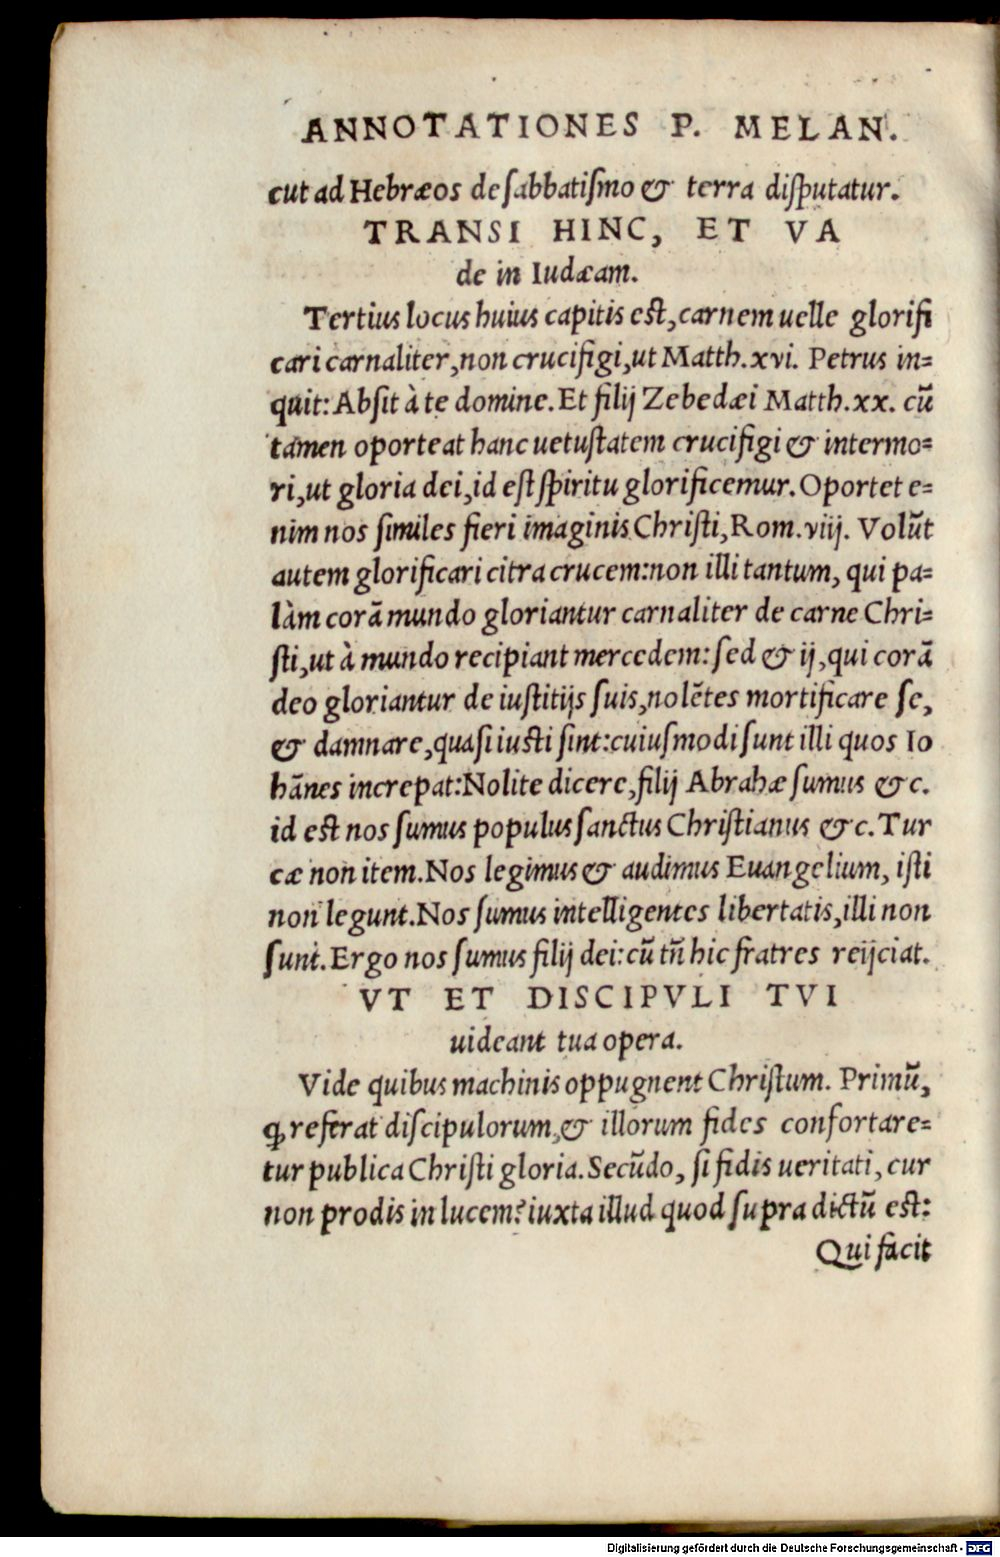 ANNOTATIONES P. MELAN.
cut ad Hebræos de ſabbatiſmo & terra diſputatur.
TRANSI HINC, ET VA
de in Iudæam.
Tertius locus huius capitis eſt, carnem uelle glorifi
cari carnaliter, non crucifigi, ut Matth. xvi. Petrus in=
quit: Abſit à te domine. Et filij Zebedæi Matth. xx. cũ
tamen oporteat hanc uetuſtatem crucifigi & intermo=
ri, ut gloria dei, id eſt ſpiritu glorificemur. Oportet e=
nim nos ſimiles fieri imaginis Chriſti, Rom. viij. Volũt
autem glorificari citra crucem: non illi tantum, qui pa=
làm corã mundo gloriantur carnaliter de carne Chri=
ſti, ut à mundo recipiant mercedem: ſed & ij, qui corã
deo gloriantur de iuſtitijs ſuis, nolẽtes mortificare ſe,
& damnare, quaſi iuſti ſint: cuiuſmodi ſunt illi quos Io
hãnes increpat: Nolite dicere, filij Abrahæ ſumus &c.
id eſt nos ſumus populus ſanctus Chriſtianus &c. Tur
cæ non item. Nos legimus & audimus Euangelium, iſti
non legunt. Nos ſumus intelligentes libertatis, illi non
ſunt. Ergo nos ſumus filij dei: cũ tñ hic fratres reijciat.
VT ET DISCIPVLI TVI
uideant tua opera.
Vide quibus machinis oppugnent Chriſtum. Primũ,
ꝙ referat diſcipulorum, & illorum fides confortare=
tur publica Chriſti gloria. Secũdo, ſi fidis ueritati, cur
non prodis in lucem? iuxta illud quod ſupra dictũ eſt:
Qui facit
Digitalisierung gefördert durch die Deutsche Forschungsgemeinschaft - DFG